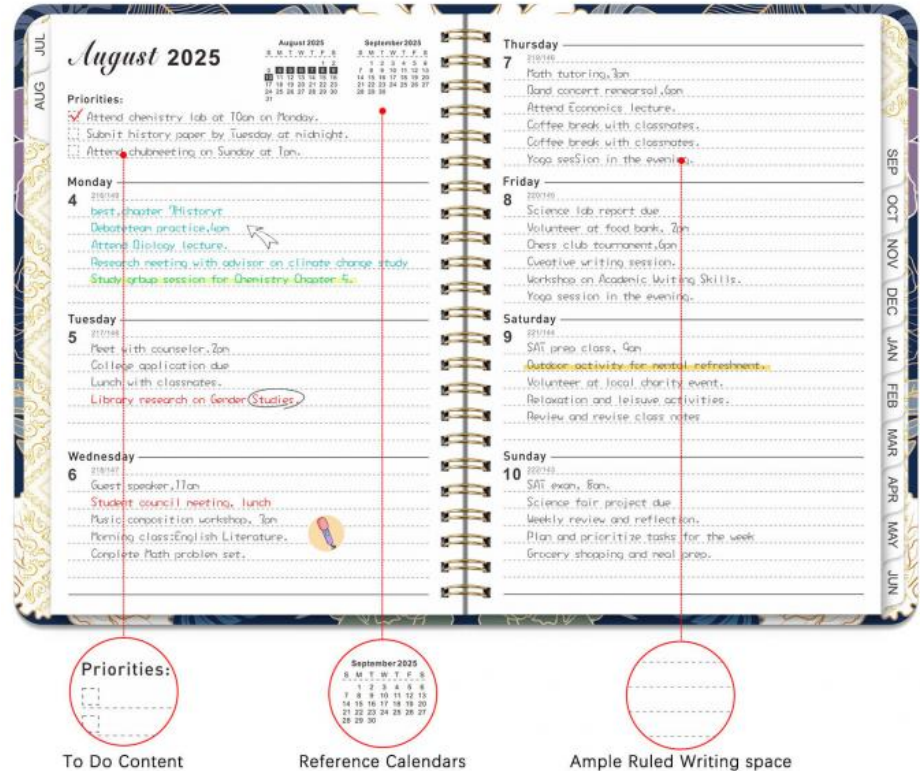 JUL
AUG
August 2025
August 2025
S M T W T F S
1 2
3 4 5 6 7 8 9
10 11 12 13 14 15 16
17 18 19 20 21 22 23
24 25 26 27 28 29 30
31
September 2025
S M T W T F S
1 2 3 4 5 6
7 8 9 10 11 12 13
14 15 16 17 18 19 20
21 22 23 24 25 26 27
28 29 30
Priorities:
Attend chemistry lab at 10am on Monday.
Submit history paper by Tuesday at midnight.
Attend chubmeeting on Sunday at 1pm.
Monday
4
216/149
best,chapter 7Historyt
Debateteam practice,4pm
Attend Biology lecture.
Research meeting with advisor on climate change study
Study grbup session for Chemistry Chapter 5.
Tuesday
5
217/148
Meet with counselor,2pm
College application due
Lunch with classmates.
Library research on Gender Studies.
Wednesday
6
218/147
Guest speaker,11am
Student council meeting, lunch
Music composition workshop, 3pm
Morning class:English Literature.
Complete Math problem set.
Thursday
7
219/146
Math tutoring,3pm
Band concert renearsal,6pm
Attend Economics lecture.
Coffee break with classmates.
Coffee break with classmates.
Yoga sesSion in the evening.
Friday
8
220/145
Science lab report due
Volunteer at food bank, 2pm
Chess club tournament,6pm
Cveative writing session.
Workshop on Academic Wuiting Skills.
Yoga session in the evening.
Saturday
9
221/144
SAT prep class, 9am
Outdoor activity for mental refreshment.
Volunteer at local charity event.
Relaxation and leisuve activities.
Review and revise class notes
Sunday
10
222/143
SAT exam, 8am.
Science fair project due
Weekly review and reflection.
Plan and prioritize tasks for the week
Grocery shopping and meal prep.
SEP
OCT
NOV
DEC
JAN
FEB
MAR
APR
MAY
JUN
Priorities:
To Do Content
September 2025
S M T W T F S
1 2 3 4 5 6
7 8 9 10 11 12 13
14 15 16 17 18 19 20
21 22 23 24 25 26 27
28 29 30
Reference Calendars
Ample Ruled Writing space